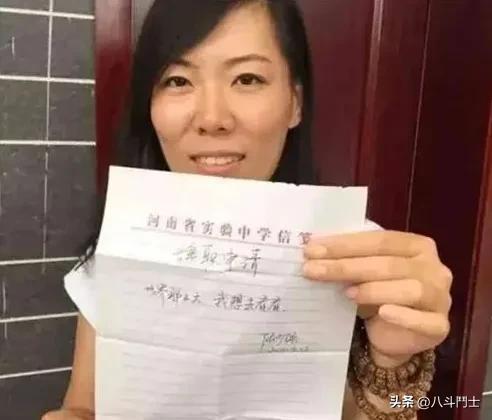 河南省实验中学信笺
辞职申请
世界那么大 我想去看看
头条 @八斗鬥士